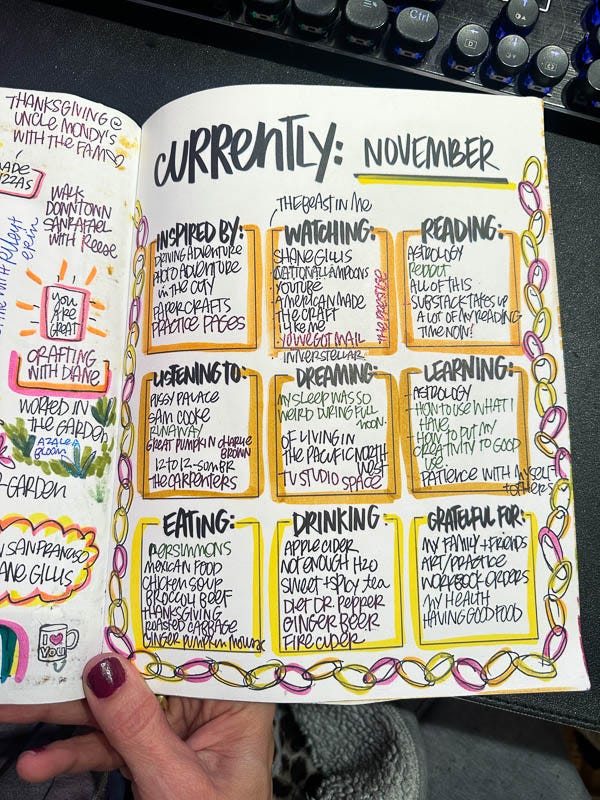 Ctrl
D
THANKSGIVING @
UNCLE MONDY'S
WITH THE FAM
WALK
DOWNTOWN
SAN RAFAEL
WITH REESE
YOU
ARE
GREAT
CRAFTING
WITH DIANE
WORKED IN
THE GARDEN
AZALEA
BLOOM
GARDEN
SAN FRANCISCO
GILLIS
I
YOU
CURRENTLY: NOVEMBER
INSPIRED BY:
DRIVING ADVENTURE
PHOTO ADVENTURE
IN THE CITY
PAPER CRAFTS
PRACTICE PAGES
THE BEAST IN ME
WATCHING:
SHANE GILLIS
NATIONAL LAMPOONS
YOUTUBE
AMERICAN MADE
THE CRAFT
LIKE ME
YOU'VE GOT MAIL
INTERSTELLAR
THE PRESTIGE
READING:
ASTROLOGY
REDDIT
ALL OF THIS
SUBSTACK TAKES UP
A LOT OF MY READING
TIME NOW!
LISTENING TO:
PUSSY PALACE
SAM COOKE
RUNAWAY
GREAT PUMPKIN CHARLIE
BROWN
12 TO 12 - SOMBR
THE CARPENTERS
DREAMING:
MY SLEEP WAS SO
WEIRD DURING FULL
MOON.
OF LIVING IN
THE PACIFIC NORTH
WEST
TV STUDIO SPACE
LEARNING:
-ASTROLOGY
-HOW TO USE WHAT I
HAVE
-HOW TO PUT MY
CREATIVITY TO GOOD
USE.
-PATIENCE WITH MYSELF
+OTHERS
EATING:
PERSIMMONS
MEXICAN FOOD
CHICKEN SOUP
BROCCOLI BEEF
THANKSGIVING
ROASTED CABBAGE
GINGER PUMPKIN MOUSSE
DRINKING
APPLE CIDER
NOT ENOUGH H2O
SWEET + SPICY TEA
DIET DR. PEPPER
GINGER BEER
FIRE CIDER
GRATEFUL FOR:
MY FAMILY + FRIENDS
ART/PRACTICE
WORKBOOK ORDERS
MY HEALTH
HAVING GOOD FOOD